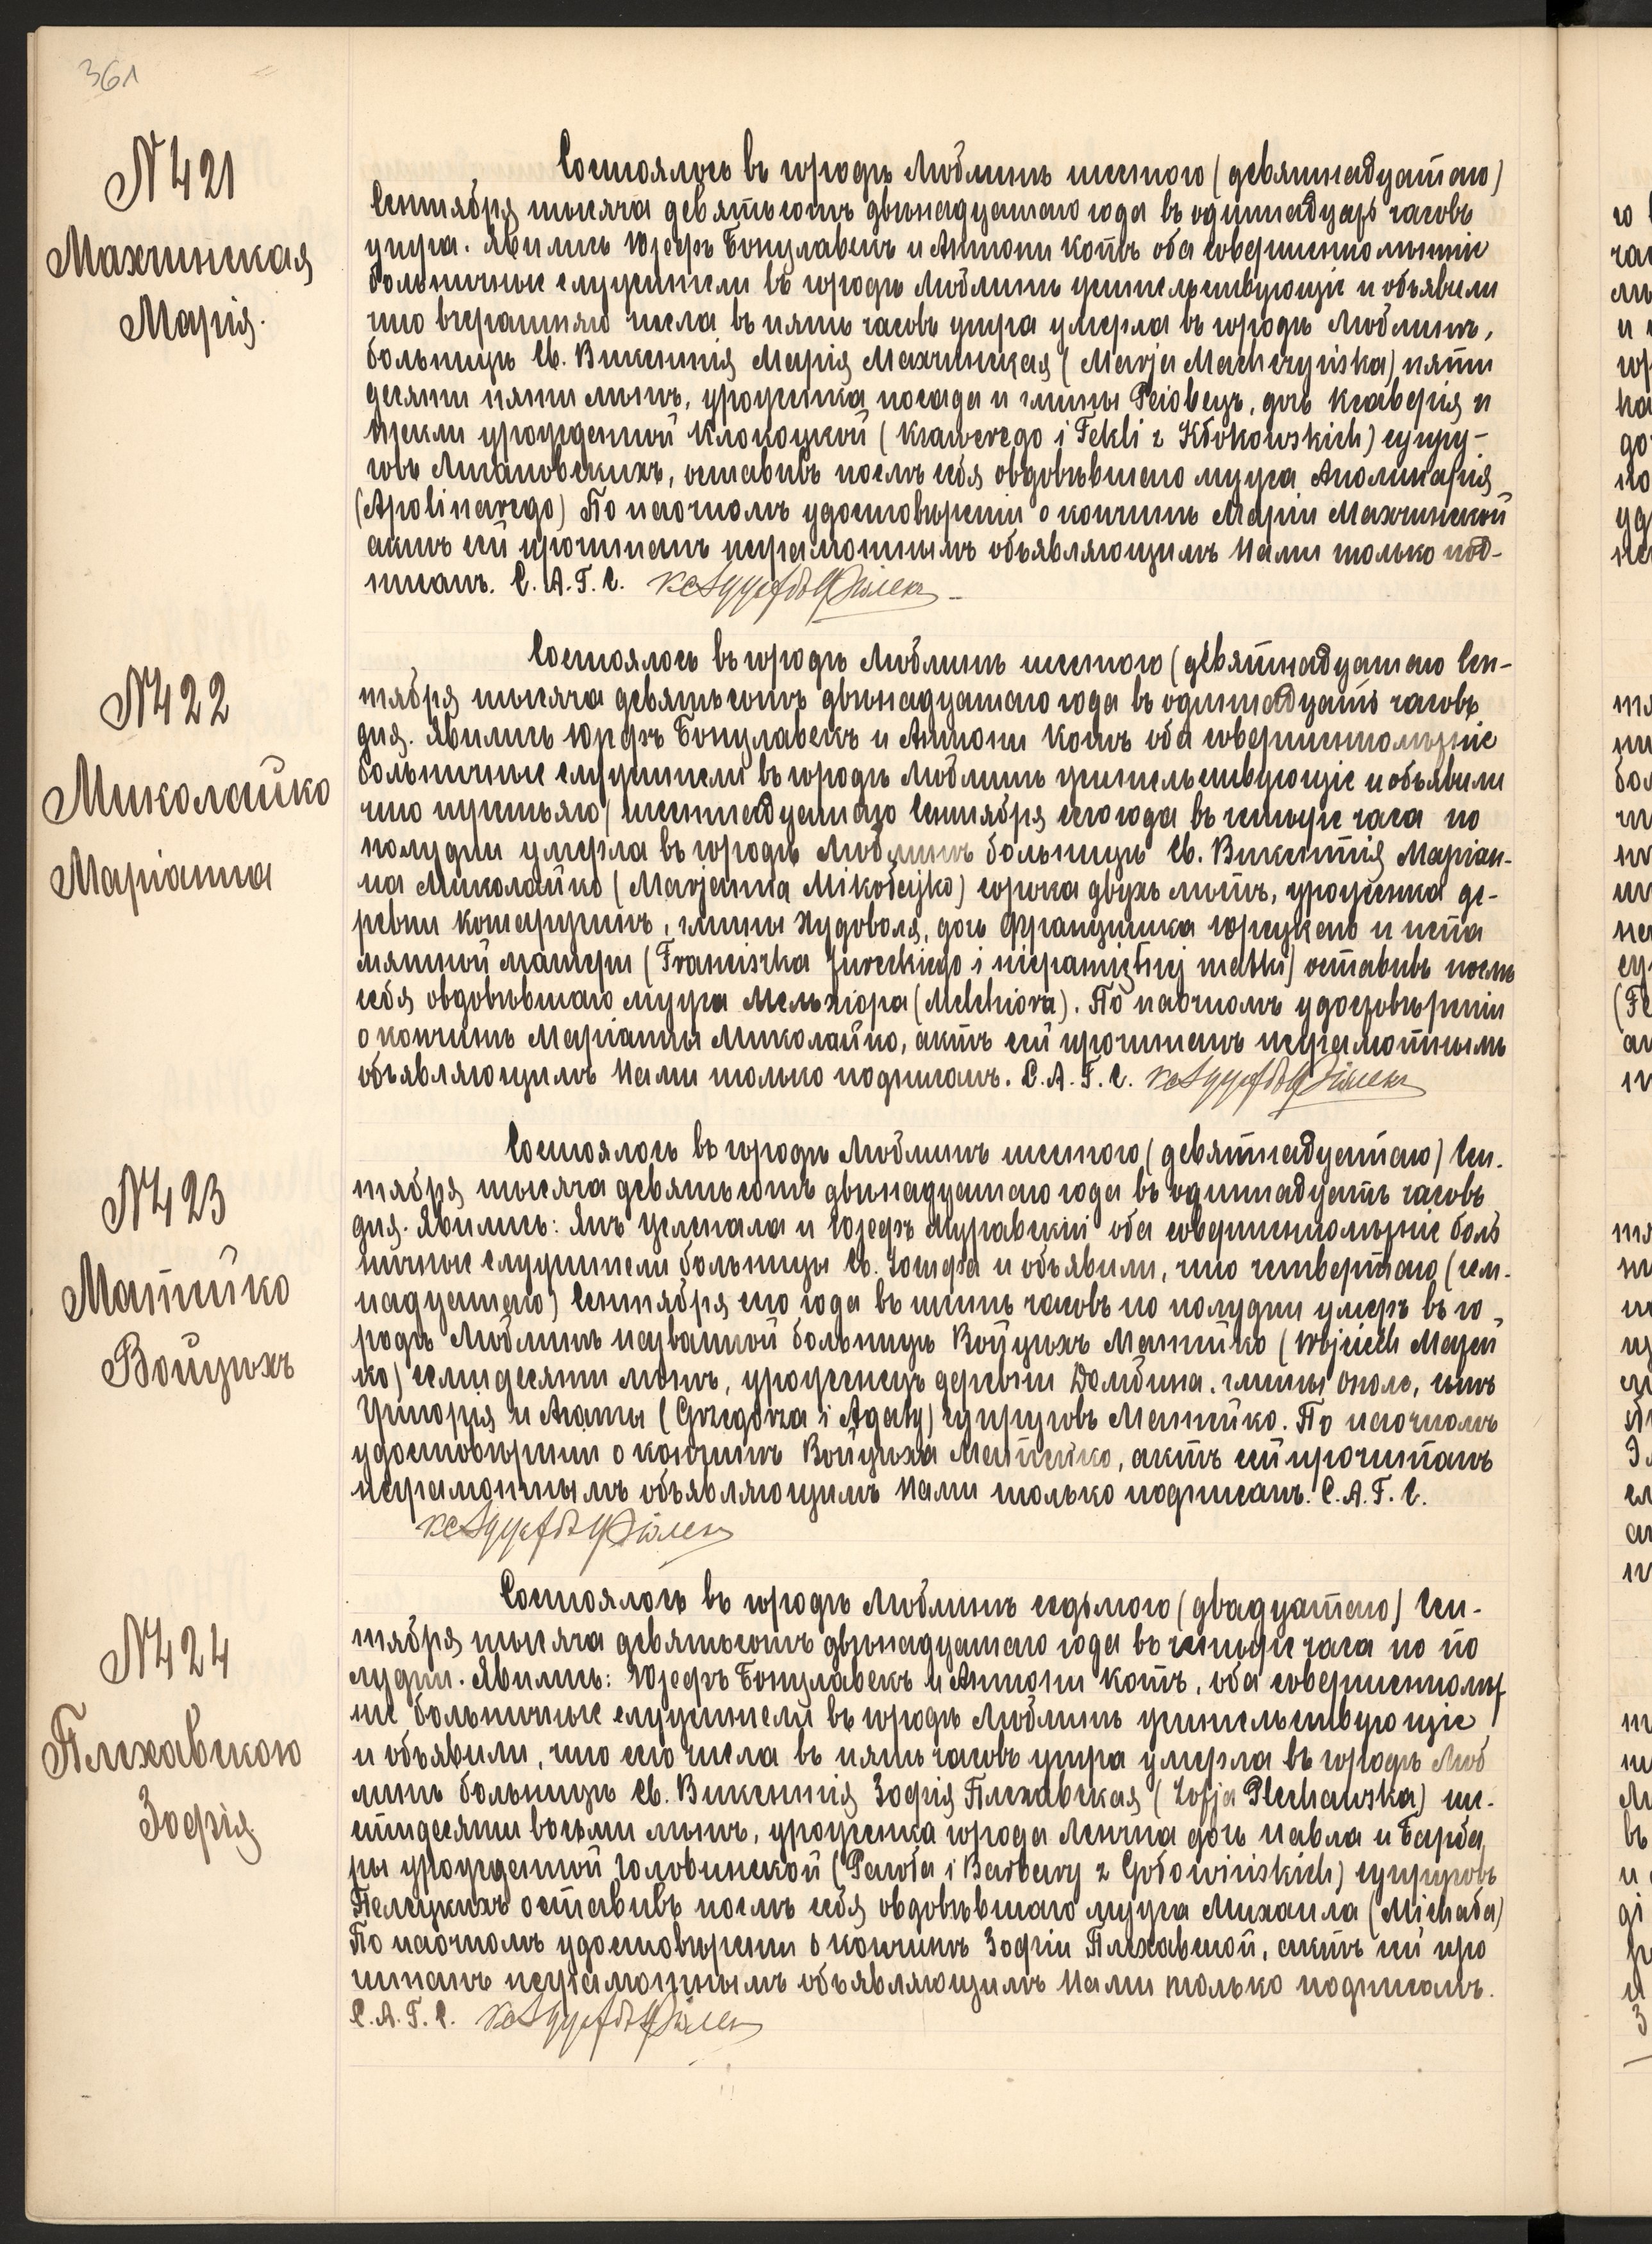 361
N 421
Махчинская
Марія.
Состоялось въ городѣ Люблинѣ шестого (девятнадцатаго)
Сентября тысяча девятьсотъ двѣнадцатаго года въ одиннадцать часовъ
утра. Явились Юзефъ Богуславекъ и Антони Котъ оба совершеннолѣтніе
больничные служители въ городѣ Люблинѣ жительствующіе и объявили
что вчерашняго числа въ пять часовъ утра умерла въ городѣ Люблинѣ,
больницѣ Св. Викентія Марія Махчинская (Marja Machczyńska) пяти
десяти пяти лѣтъ, уроженка посада и гмины Реіовецъ, дочь Ксаверія и
Текли урожденной Клокоцкой (Ksawerego i Tekli z Kłokowskich) супру-
говъ Литановскихъ, оставивъ послѣ себя овдовѣвшаго мужа Аполинарія
(Apolinarego) По наочномъ удостовѣреніи о кончинѣ Маріи Махчинской
актъ сей прочитанъ неграмотнымъ объявляющимъ Нами только под-
писанъ. С. А. Г. С.
N 422
Миколайко
Маріанна
Состоялось въ городѣ Люблинѣ шестого (девятнадцатаго Сен-
тября тысяча девятьсотъ двѣнадцатаго года въ одиннадцать часовъ
дня. Явились Юзефъ Богуславекъ и Антони Котъ оба совершеннолѣтніе
больничные служители въ городѣ Люблинѣ жительствующіе и объявили
что третьяго (шестнадцатаго Сентября сего года въ четыре часа по
полудни умерла въ городѣ Люблинѣ больницѣ Св. Викентія Маріан-
на Миколайко (Marjanna Mikołajko) сорока двухъ лѣтъ, уроженка де-
ревни , гмины Худоволя, дочь Францишка и непа
мятной матери (Franciszka Jureckiego i niepamiętnej matki) оставивъ послѣ
себя овдовѣвшаго мужа Мельхіора (Melchiora). По наочномъ удостовѣреніи
о кончинѣ Маріанны Миколайко, актъ сей прочитанъ неграмотнымъ
объявляющимъ Нами только подписанъ. С. А. Г. С.
N 423
Матейко
Войцѣхъ
Состоялось въ городѣ Люблинѣ шестого (девятнадцатаго) Сен-
тября тысяча девятьсотъ двѣнадцатаго года въ одиннадцать часовъ
дня. Явились: Янъ и Юзефъ Муравскій оба совершеннолѣтніе боль
ничные служители больницы Св. Іосифа и объявили, что четвертаго (сем-
надцатаго) Сентября сего года въ шесть часовъ по полудни умеръ въ го-
родѣ Люблинѣ названной больницѣ Войцѣхъ Матейко (Wojciech Matej
ko) семидесяти лѣтъ, уроженецъ деревни Домбина, гмины , сынъ
Григорія и Агаты (Grzegorza i Agaty) супруговъ Матейко. По наочномъ
удостовѣреніи о кончинѣ Войцѣха Матейко, актъ сей прочитанъ
неграмотнымъ объявляющимъ Нами только подписанъ. С. А. Г. С.
N 424
Плехавскою
Зофія
Состоялось въ городѣ Люблинѣ седьмого (двадцатаго) Сен-
тября тысяча девятьсотъ двѣнадцатаго года въ четыре часа по по
лудни. Явились: Юзефъ Богуславекъ и Антони Котъ, оба совершеннолѣт
ніе больничные служители въ городѣ Люблинѣ жительствующіе
и объявили, что сего числа въ пять часовъ утра умерла въ городѣ Люб
линѣ больницѣ Св. Викентія Зофія Плехавская (Zofja Plechawska) ше-
стидесяти восьми лѣтъ, уроженка города Ленчна дочь Павла и Барба
ры урожденной Головинской (Pawła i Barbary z Gołowińskich) супруговъ
Пелецкихъ оставивъ послѣ себя овдовѣвшаго мужа Михаила (Michała)
По наочномъ удостовѣреніи о кончинѣ Зофіи Плехавской, актъ сей про
читанъ неграмотнымъ объявляющимъ Нами только подписанъ.
С. А. Г. С.